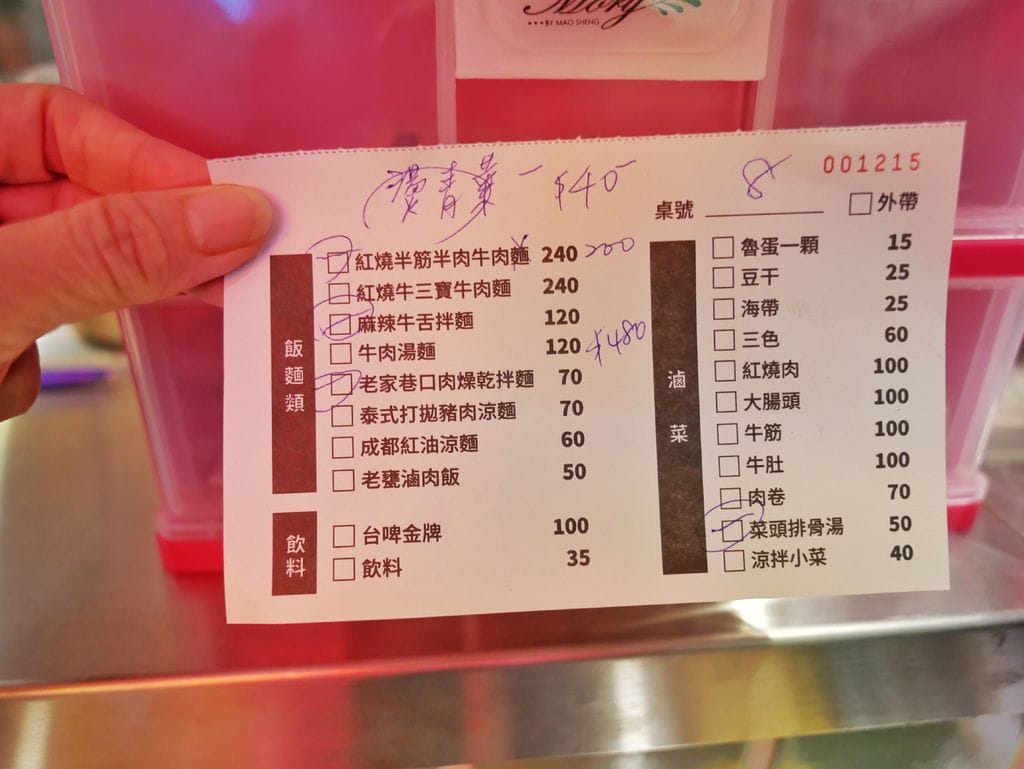 Mory
•••BY MAO SHENG
燙青菜 一 $40
8
001215
桌號
外帶
飯麵類
紅燒半筋半肉牛肉麵 240 200
紅燒牛三寶牛肉麵 240
麻辣牛舌拌麵 120
牛肉湯麵 120 $480
老家巷口肉燥乾拌麵 70
泰式打拋豬肉涼麵 70
成都紅油涼麵 60
老甕滷肉飯 50
飲料
台啤金牌 100
飲料 35
滷菜
魯蛋一顆 15
豆干 25
海帶 25
三色 60
紅燒肉 100
大腸頭 100
牛筋 100
牛肚 100
肉卷 70
菜頭排骨湯 50
涼拌小菜 40